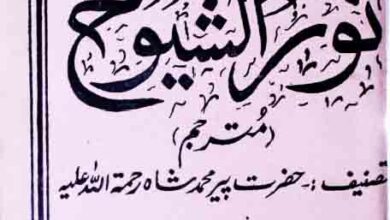 نور الشیوخ
(مُترجم)
تصنیف:۔ حضرت پیر محمد شاہ رحمۃ اللہ علیہ